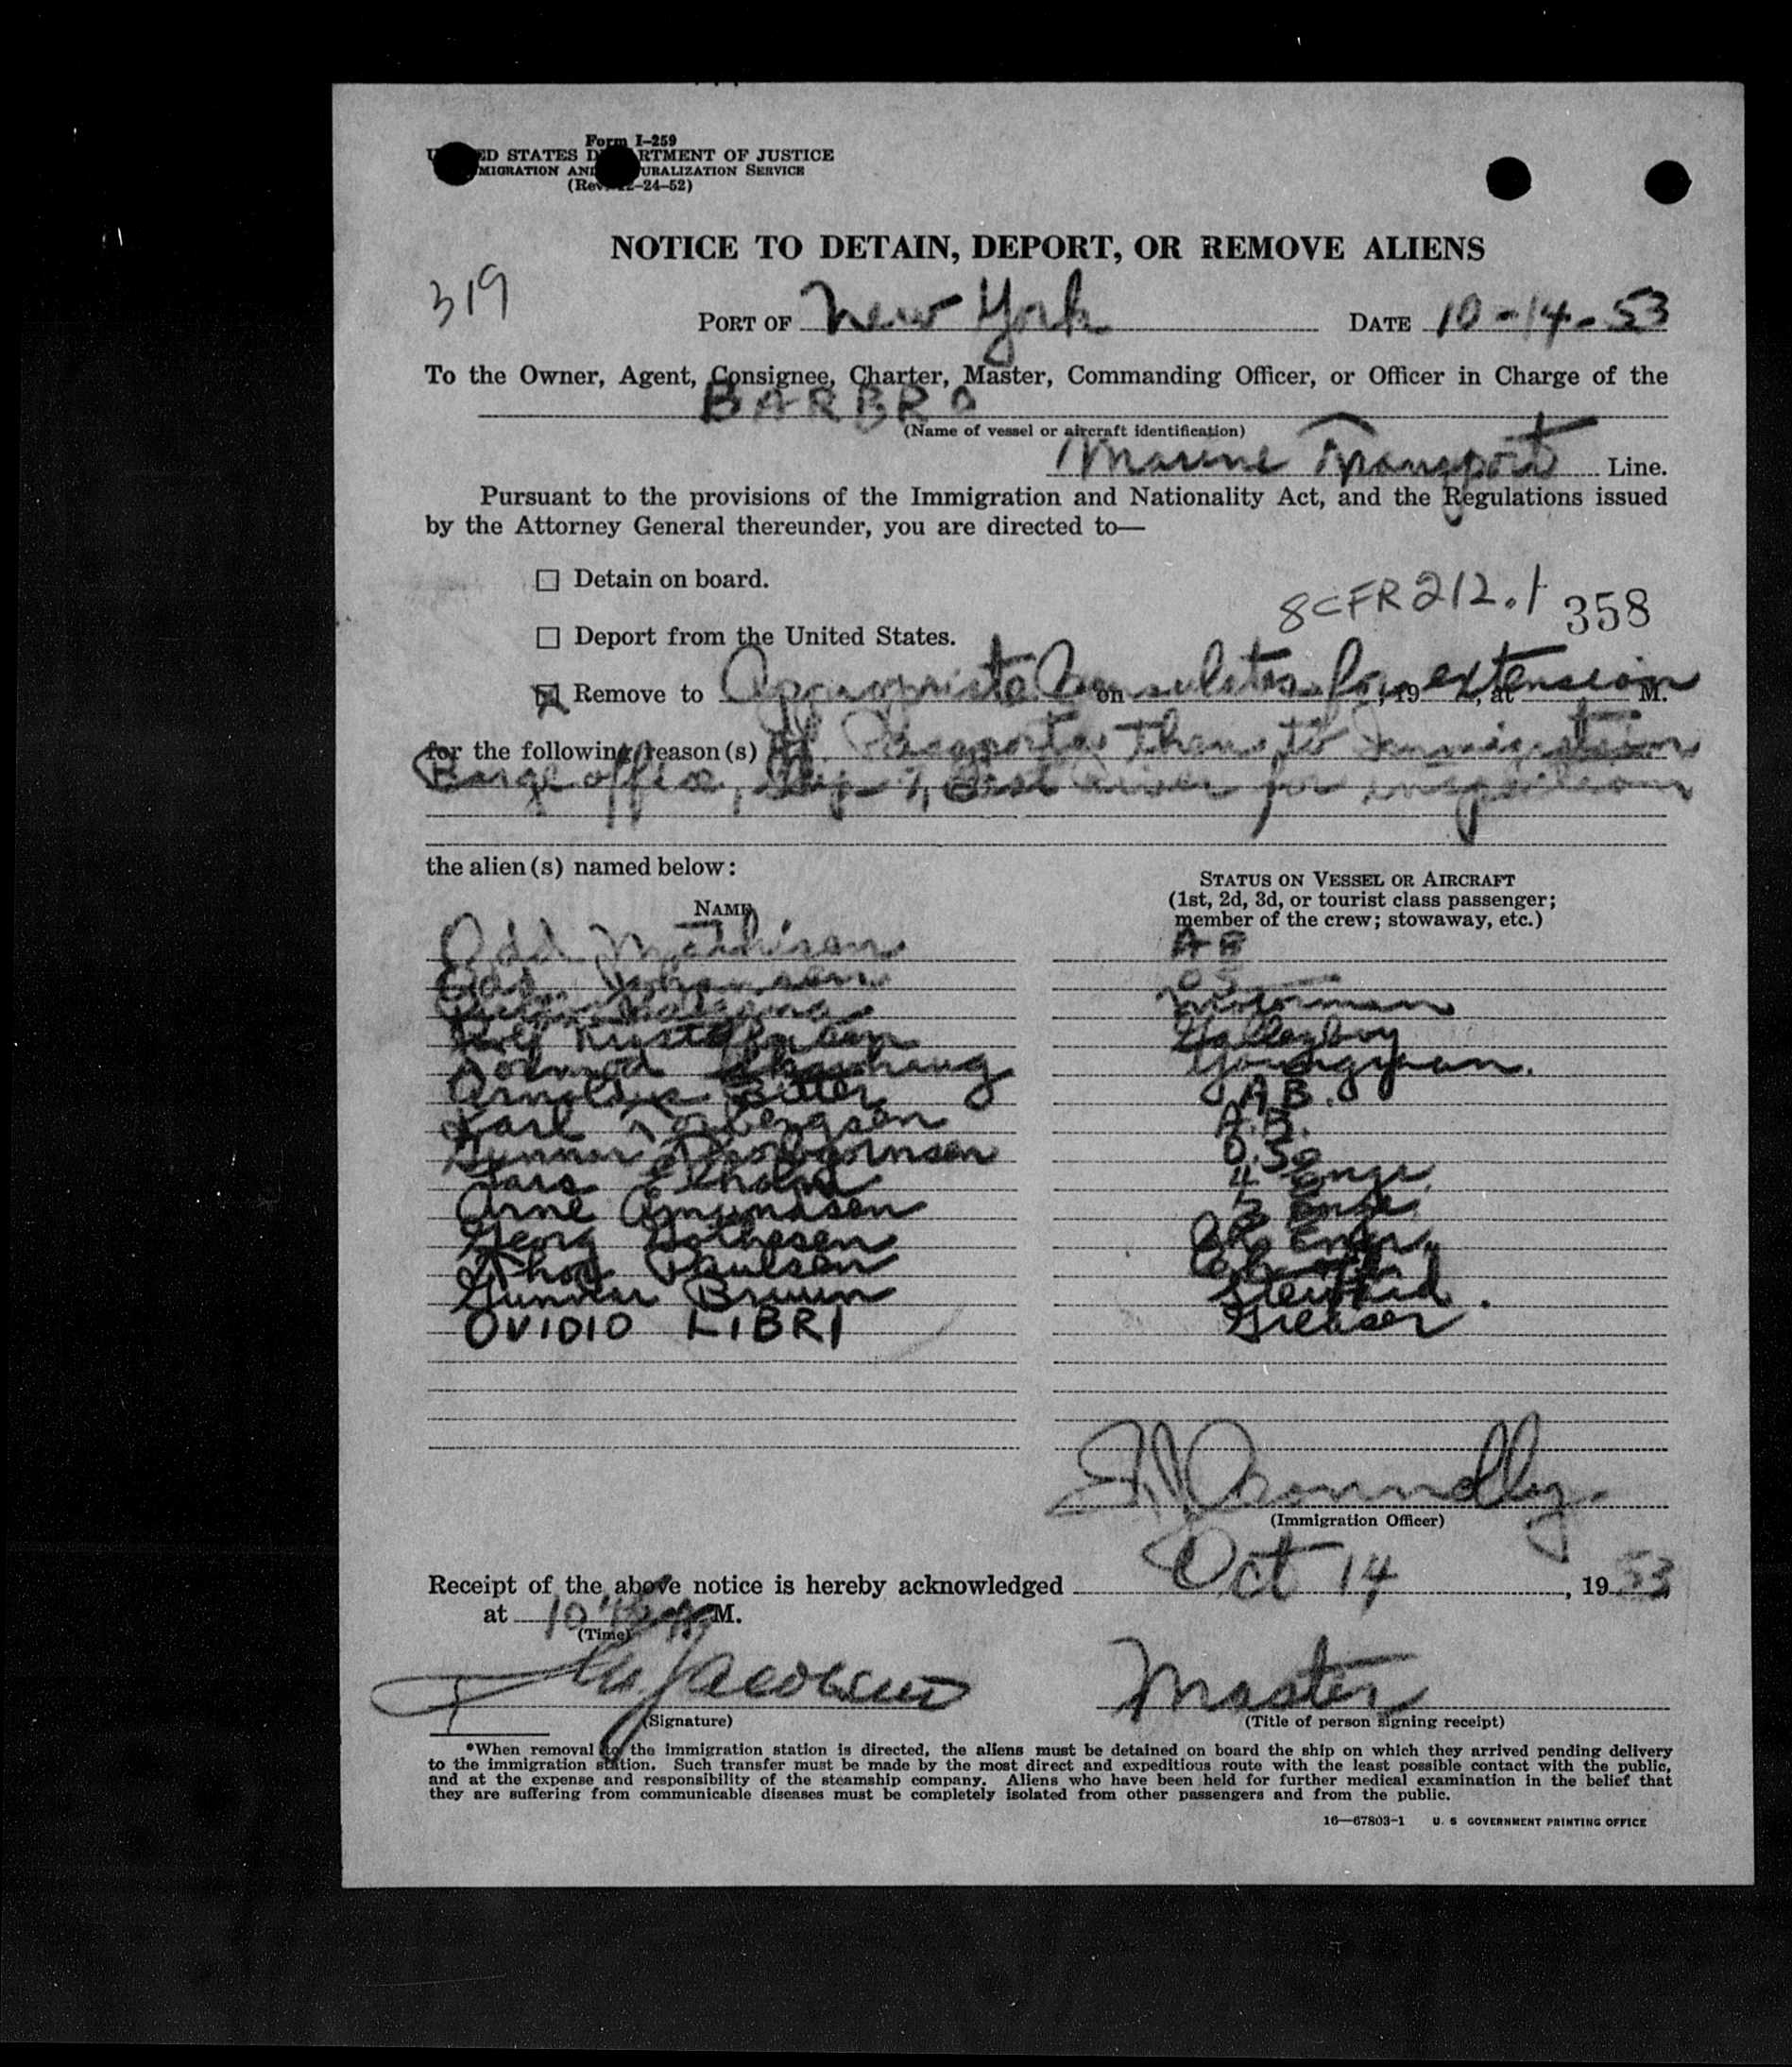 Form I-259
UNITED STATES DEPARTMENT OF JUSTICE
IMMIGRATION AND NATURALIZATION SERVICE
(Rev. 12-24-52)
NOTICE TO DETAIN, DEPORT, OR REMOVE ALIENS
319
PORT OF New York DATE 10-14-53
To the Owner, Agent, Consignee, Charter, Master, Commanding Officer, or Officer in Charge of the
BARBRO
(Name of vessel or aircraft identification)
Marine Transport Line.
Pursuant to the provisions of the Immigration and Nationality Act, and the Regulations issued
by the Attorney General thereunder, you are directed to—
Detain on board.
8CFR212.1 358
Deport from the United States.
Remove to Appropriate Consulates for extension on , 19 , at M.
for the following reason(s) of Passports then to Immigration
Barge office, Slip 7, East River for inspection
the alien(s) named below:
STATUS ON VESSEL OR AIRCRAFT
(1st, 2d, 3d, or tourist class passenger;
member of the crew; stowaway, etc.)
NAME
Odd Mathisen AB
Odd Johansen OS
Motorman
Rolf Kristoffersen Galleyboy
Youngman.
Arnoldus Bitter AB.
Karl Torbergsen A.B.
Gunnar Thorbjornsen O.S.
Lars 4 Engr.
Arne Amundsen 3 Engr
Georg Gothesen 2R Engr.
Thor Paulsen
Gunnar Bruun Steward.
OVIDIO LIBRI Greaser
E.J. Connolly
(Immigration Officer)
Receipt of the above notice is hereby acknowledged Oct 14, 1953
at 10 A M.
(Time)
Jacobsen Master
(Signature) (Title of person signing receipt)
*When removal to the immigration station is directed, the aliens must be detained on board the ship on which they arrived pending delivery
to the immigration station. Such transfer must be made by the most direct and expeditious route with the least possible contact with the public,
and at the expense and responsibility of the steamship company. Aliens who have been held for further medical examination in the belief that
they are suffering from communicable diseases must be completely isolated from other passengers and from the public.
16—67803-1 U. S GOVERNMENT PRINTING OFFICE